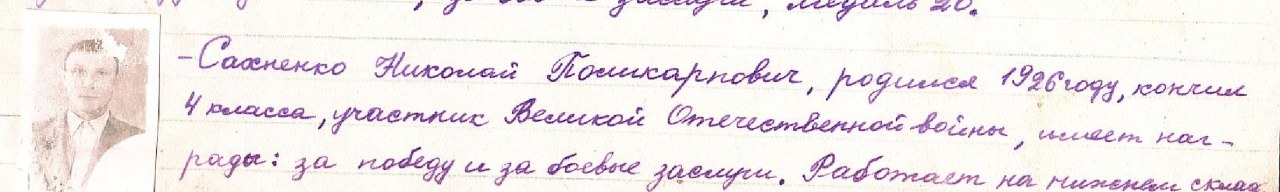 за боевые заслуги, медаль 20.
- Сахненко Николай Поликарпович, родился 1926 году, кончил
4 класса, участник Великой Отечественной войны, имеет наг-
рады: за победу и за боевые заслуги. Работает на нижнем склад